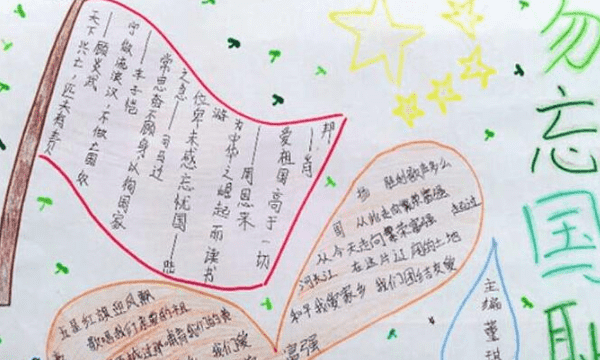 勿忘国耻
天下兴亡，匹夫有责
——顾炎武
宁做流浪汉，不做亡国奴
——丰子恺
常思奋不顾身以徇国家
之急——司马迁
位卑未感忘忧国——陆
游
为中华之崛起而读书
——周恩来
爱祖国高于一切
——肖
邦
五星红旗迎风飘
歌唱我们亲爱的祖
我们
富强
扬 胜利歌声多么
国 从此走向繁荣富强 越过
从今天走向繁荣富强
河长江 在这片 阔的土地
和平我爱家乡 我们团结友爱
主编 董琪